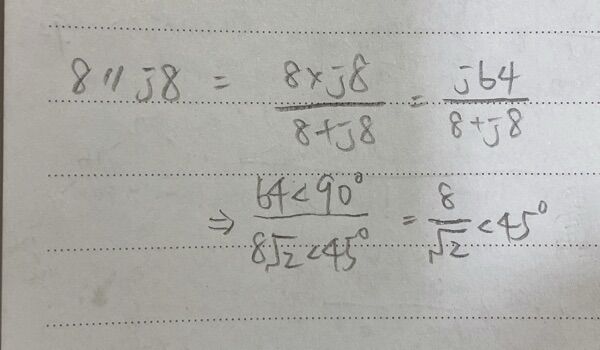 8 // j8 = 8×j8 / 8+j8 = j64 / 8+j8
⇒ 64<90° / 8√2<45° = 8 / √2 <45°